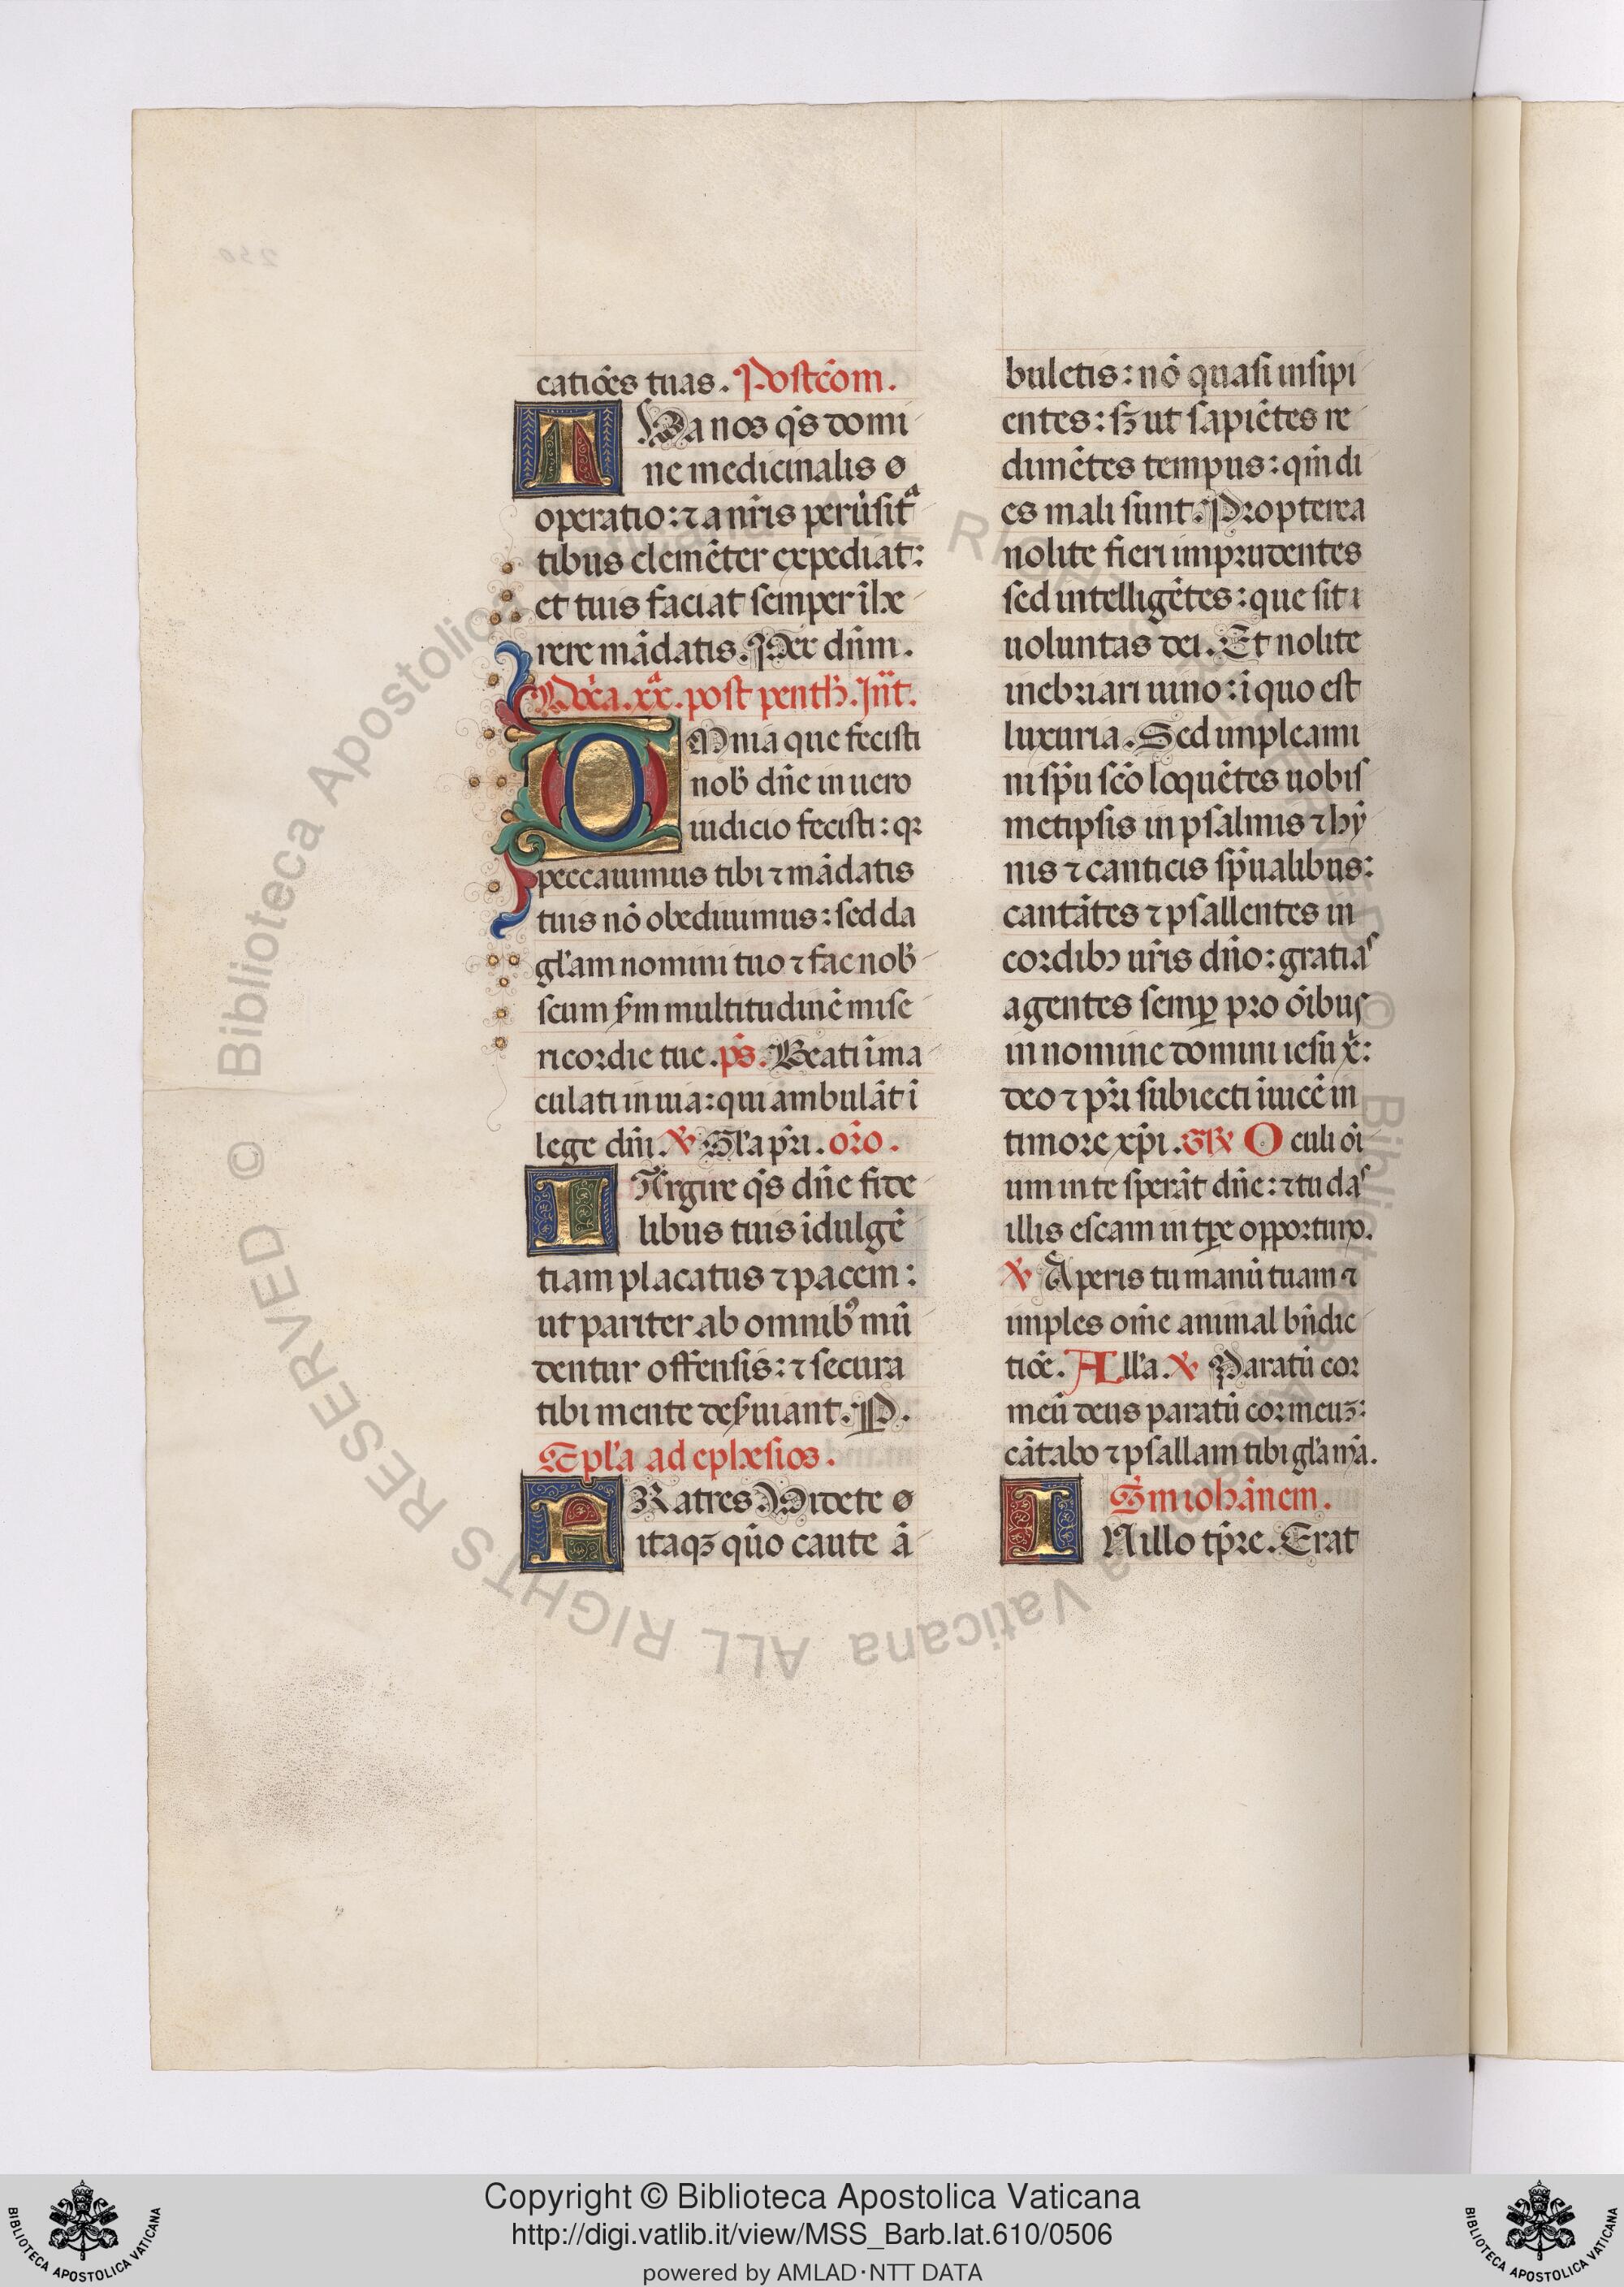 catiões tuas. Postcõm.
TVa nos q̃s domi
ne medicinalis o
operatio: ⁊ a nr̃is peruersitᵃ
tibus clemẽter expediat:
et tuis faciat semper ĩhe
rere mãdatis. Per dñm.
Dñica .xx. post penth. Int̃.
OMnia que fecisti
nob dñe in uero
iudicio fecisti: qꝛ
peccauimus tibi ⁊ mãdatis
tuis nõ obediuimus: sed da
gl̃am nomini tuo ⁊ fac nob
scum sm multitudinẽ mise
ricordie tue. ps. Beati ĩma
culati in uia: qui ambulãt ĩ
lege dñi. ℣ Gl̃a pr̃i. or̃o.
LArgire q̃s dñe fide
libus tuis ĩdulgẽ
tiam placatus ⁊ pacem:
ut pariter ab omnibꝰ mũ
dentur offensis: ⁊ secura
tibi mente deseruiant. P.
Epl̃a ad ephesios.
FRatres Videte o
itaqꝫ quõ caute ã
buletis: nõ quasi insipi
entes: sꝫ ut sapiẽtes re
dimẽtes tempus: qm̃ di
es mali sunt. Propterea
nolite fieri imprudentes
sed intelligẽtes: que sit ı
uoluntas dei. Et nolite
inebriari uino: ĩ quo est
luxuria. Sed impleami
ni sp̃u sc̃o loquẽtes uobis
metipsis in psalmis ⁊ hỹ
nis ⁊ canticis sp̃ualibus:
cantãtes ⁊ psallentes in
cordibꝫ ur̃is dño: gratias
agentes semꝑ pro oĩbus
in nomine domini iesu x̃:
deo ⁊ pr̃i subiecti ĩuicẽ in
timore xp̃i. GR̃ Oculi oĩ
um in te sperãt dñe: ⁊ tu das
illis escam in tꝑe opportuno.
℣ Aperis tu manũ tuam ⁊
imples om̃e animal bñdic
tiõe. All̃a. ℣ Paratũ cor
meũ deus paratũ cor meuꝫ:
cãtabo ⁊ psallam tibi gl̃a mã.
Sm iohãnem.
IN illo tp̃re. Erat
© Biblioteca Apostolica Vaticana ALL RIGHTS RESERVED
Copyright © Biblioteca Apostolica Vaticana
http://digi.vatlib.it/view/MSS_Barb.lat.610/0506
powered by AMLAD·NTT DATA
BIBLIOTECA APOSTOLICA VATICANA
BIBLIOTECA APOSTOLICA VATICANA